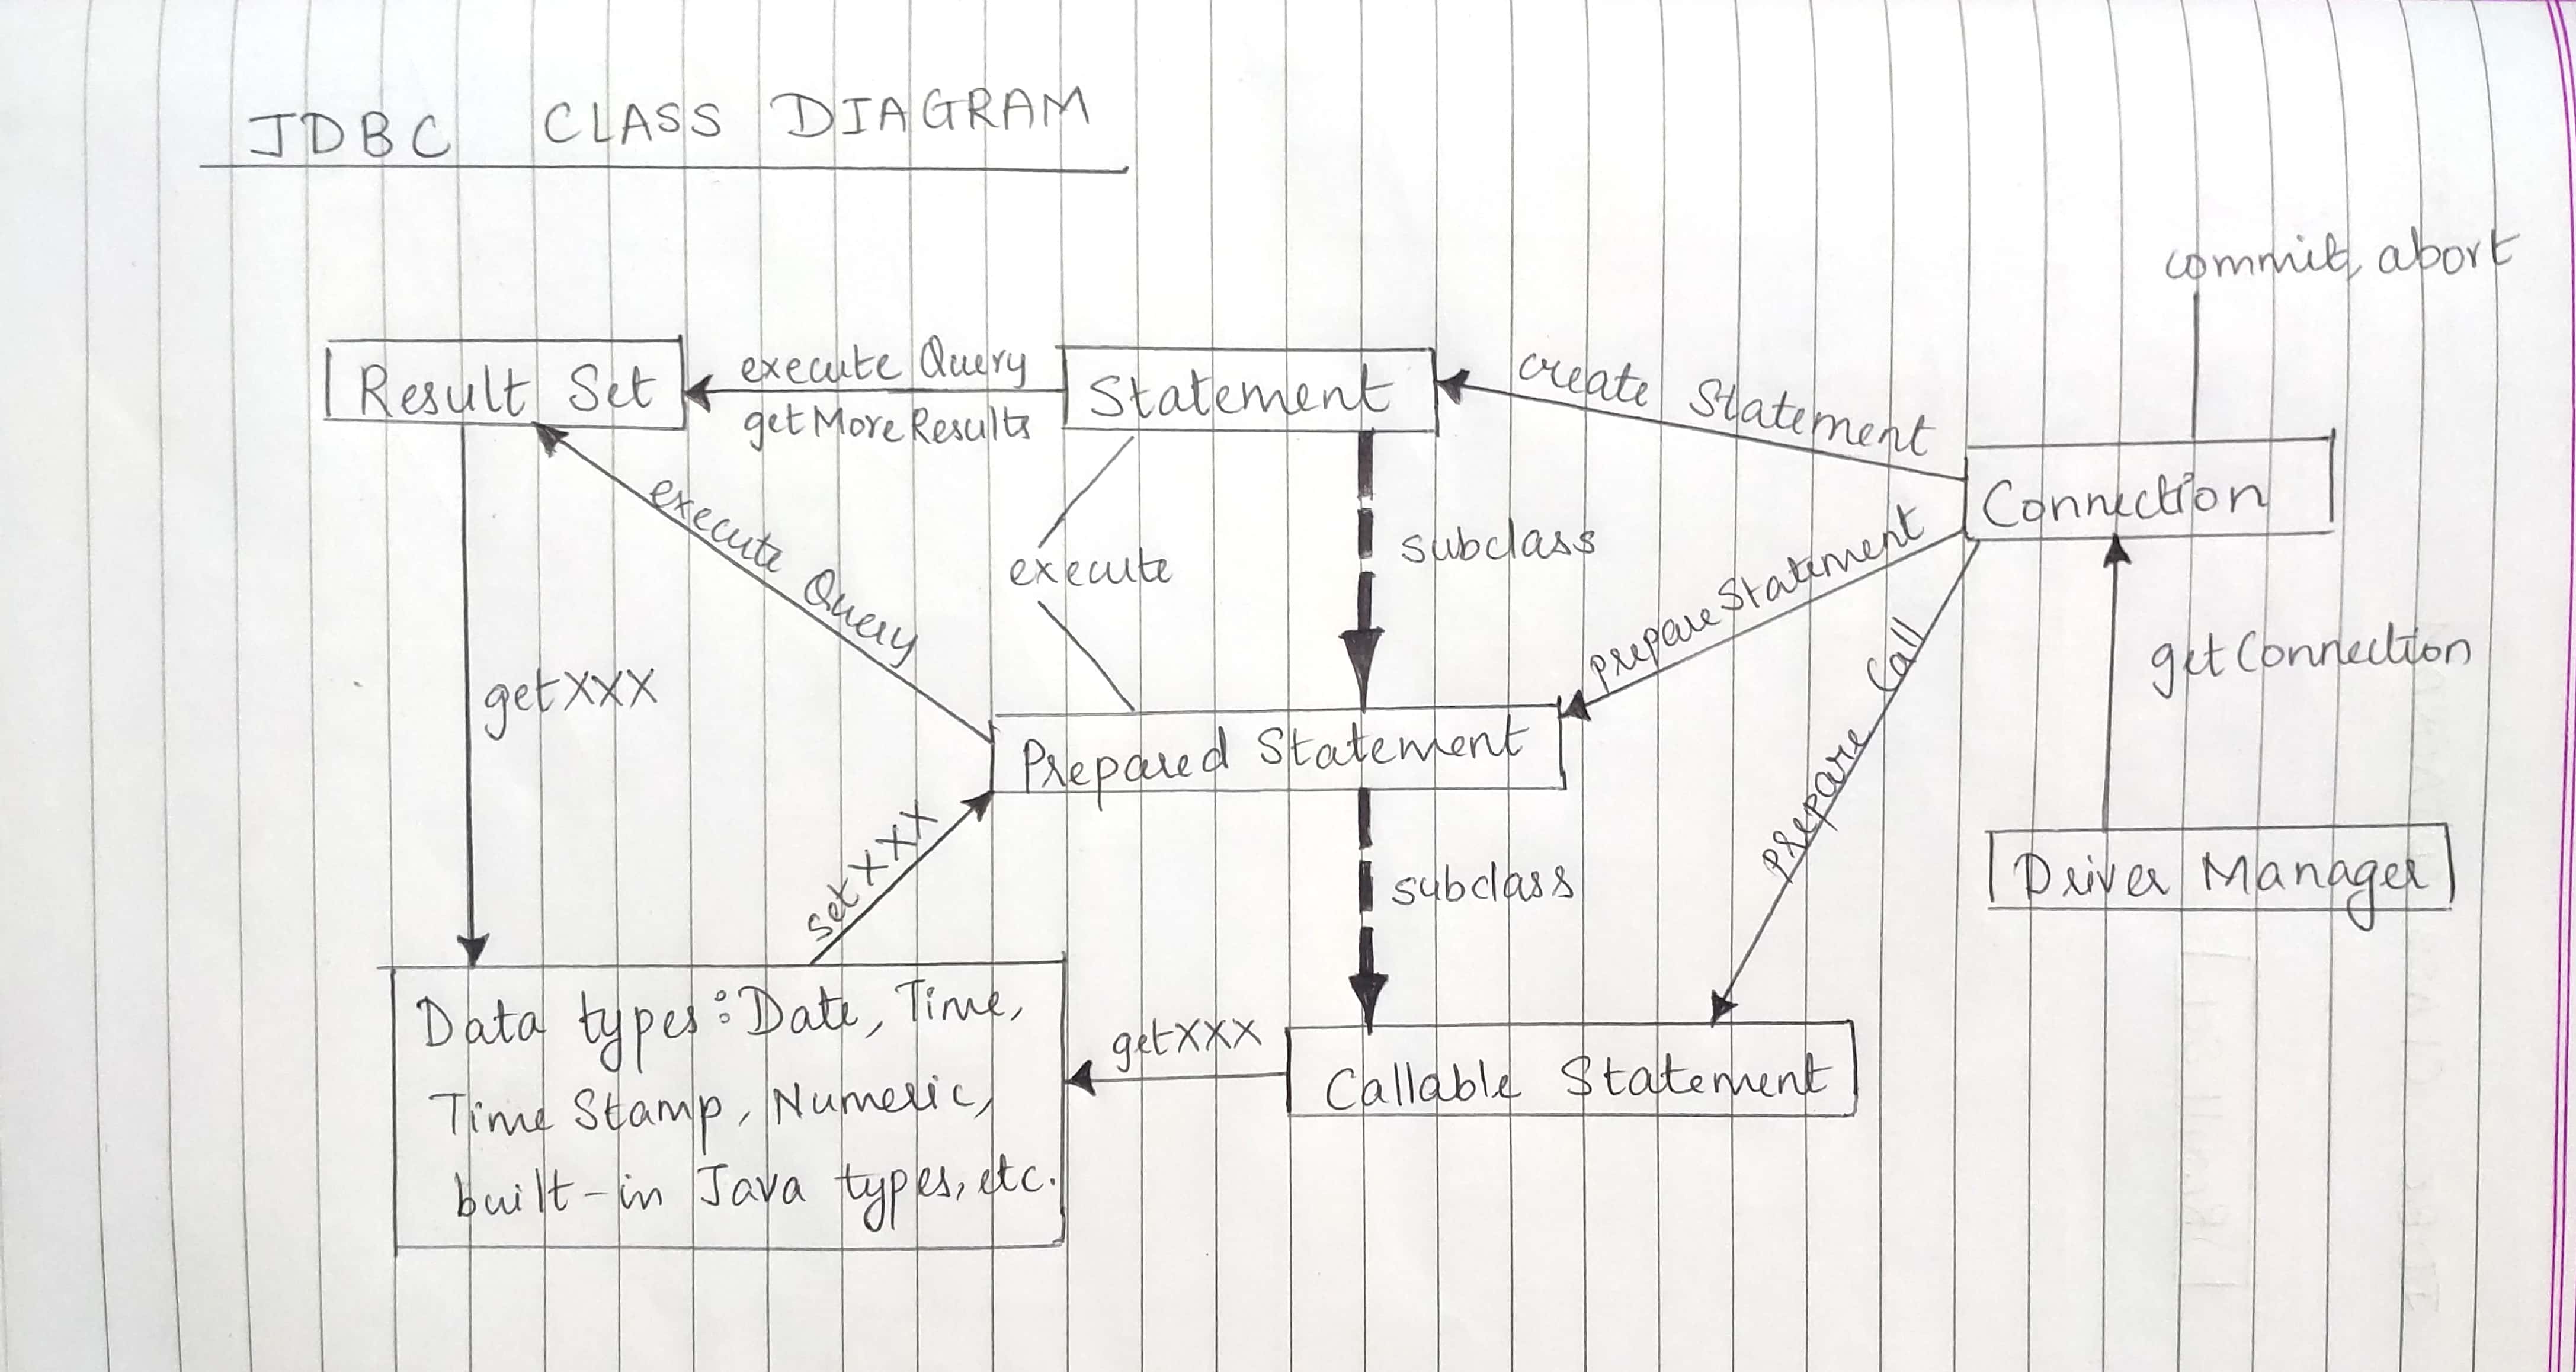 JDBC CLASS DIAGRAM
commit, abort
Result Set
execute Query
getMoreResults
Statement
create Statement
Connection
execute Query
execute
subclass
prepare Statement
getXXX
Prepare Call
getConnection
Prepared Statement
setXXX
subclass
Driver Manager
Data types: Date, Time,
Time Stamp, Numeric,
built-in Java types, etc.
getXXX
Callable Statement